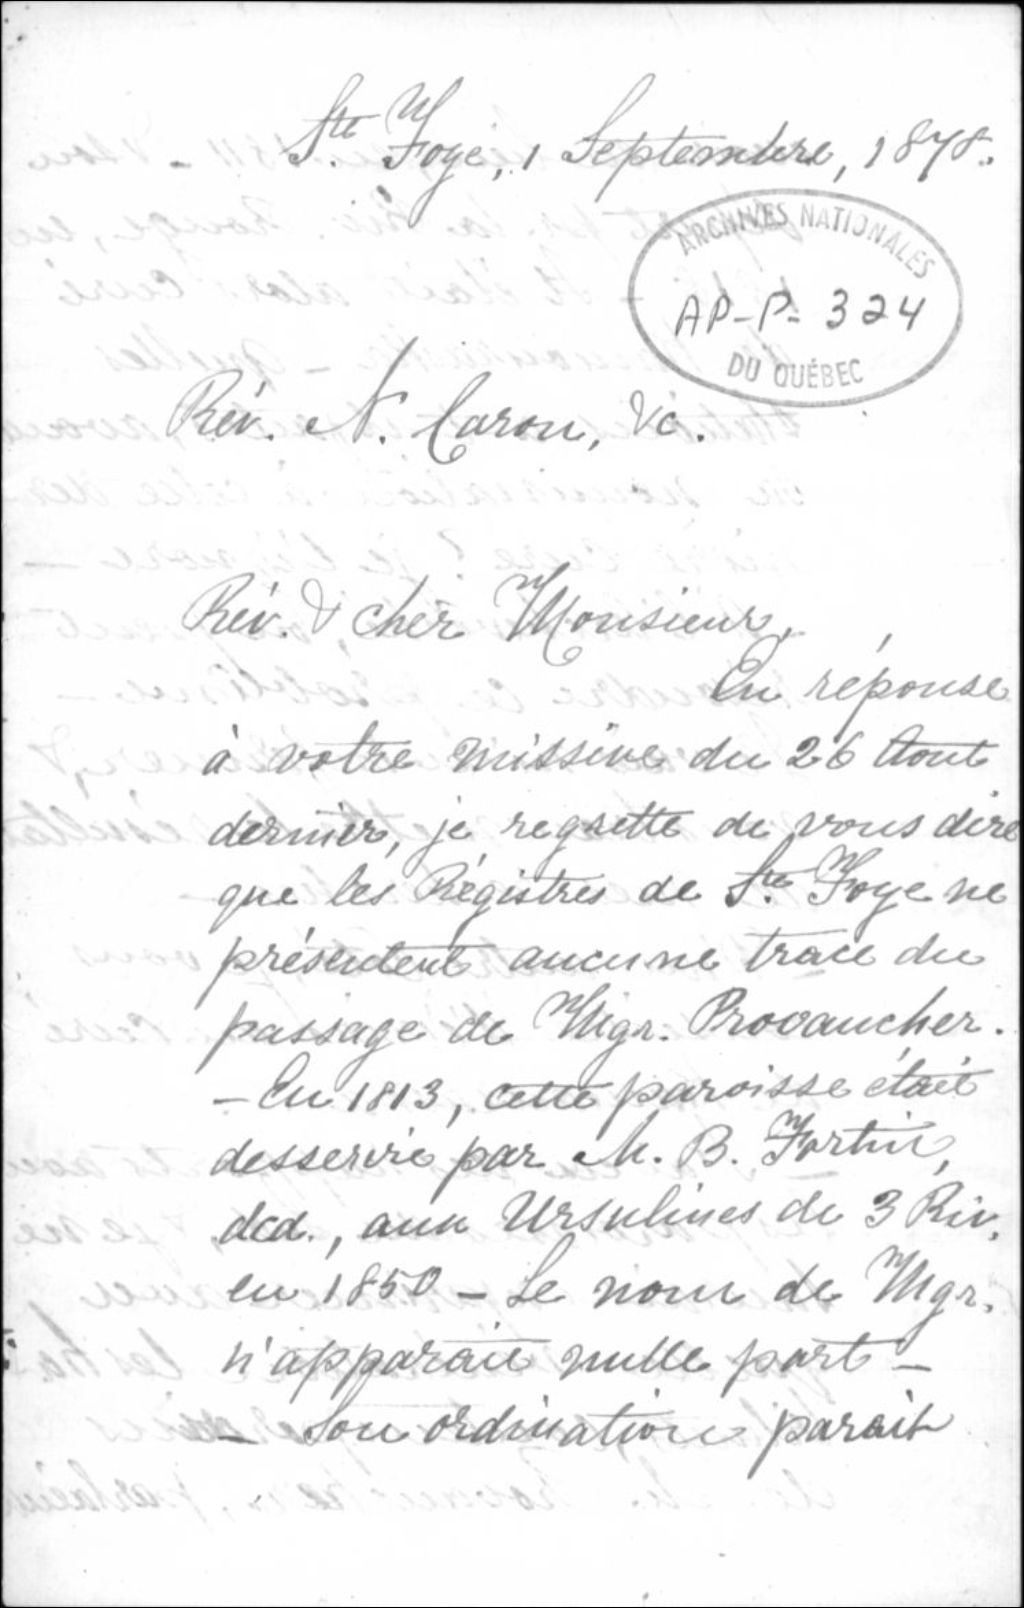 Ste Foye, 1 Septembre, 1878.
ARCHIVES NATIONALES
AP-P- 324
DU QUÉBEC
Rév. N. Caron, &c.
Rév. & cher Monsieur,
En réponse
à votre missive du 26 Aout
dernier, je regrette de vous dire
que les Régistres de Ste Foye ne
présentent aucune trace du
passage de Mgr. Provancher.
- En 1813, cette paroisse était
desservie par M. B. Fortin,
dcd., aux Ursulines de 3 Riv.
en 1850 - Le nom de Mgr.
n'apparait nulle part -
- Son ordination parait